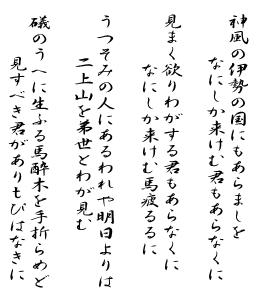 神風の伊勢の国にもあらましを
なにしか来けむ君もあらなくに
見まく欲りわがする君もあらなくに
なにしか来けむ馬疲るるに
うつそみの人にあるわれや明日よりは
二上山を弟世とわが見む
磯のうへに生ふる馬酔木を手折らめど
見すべき君がありもひはなきに